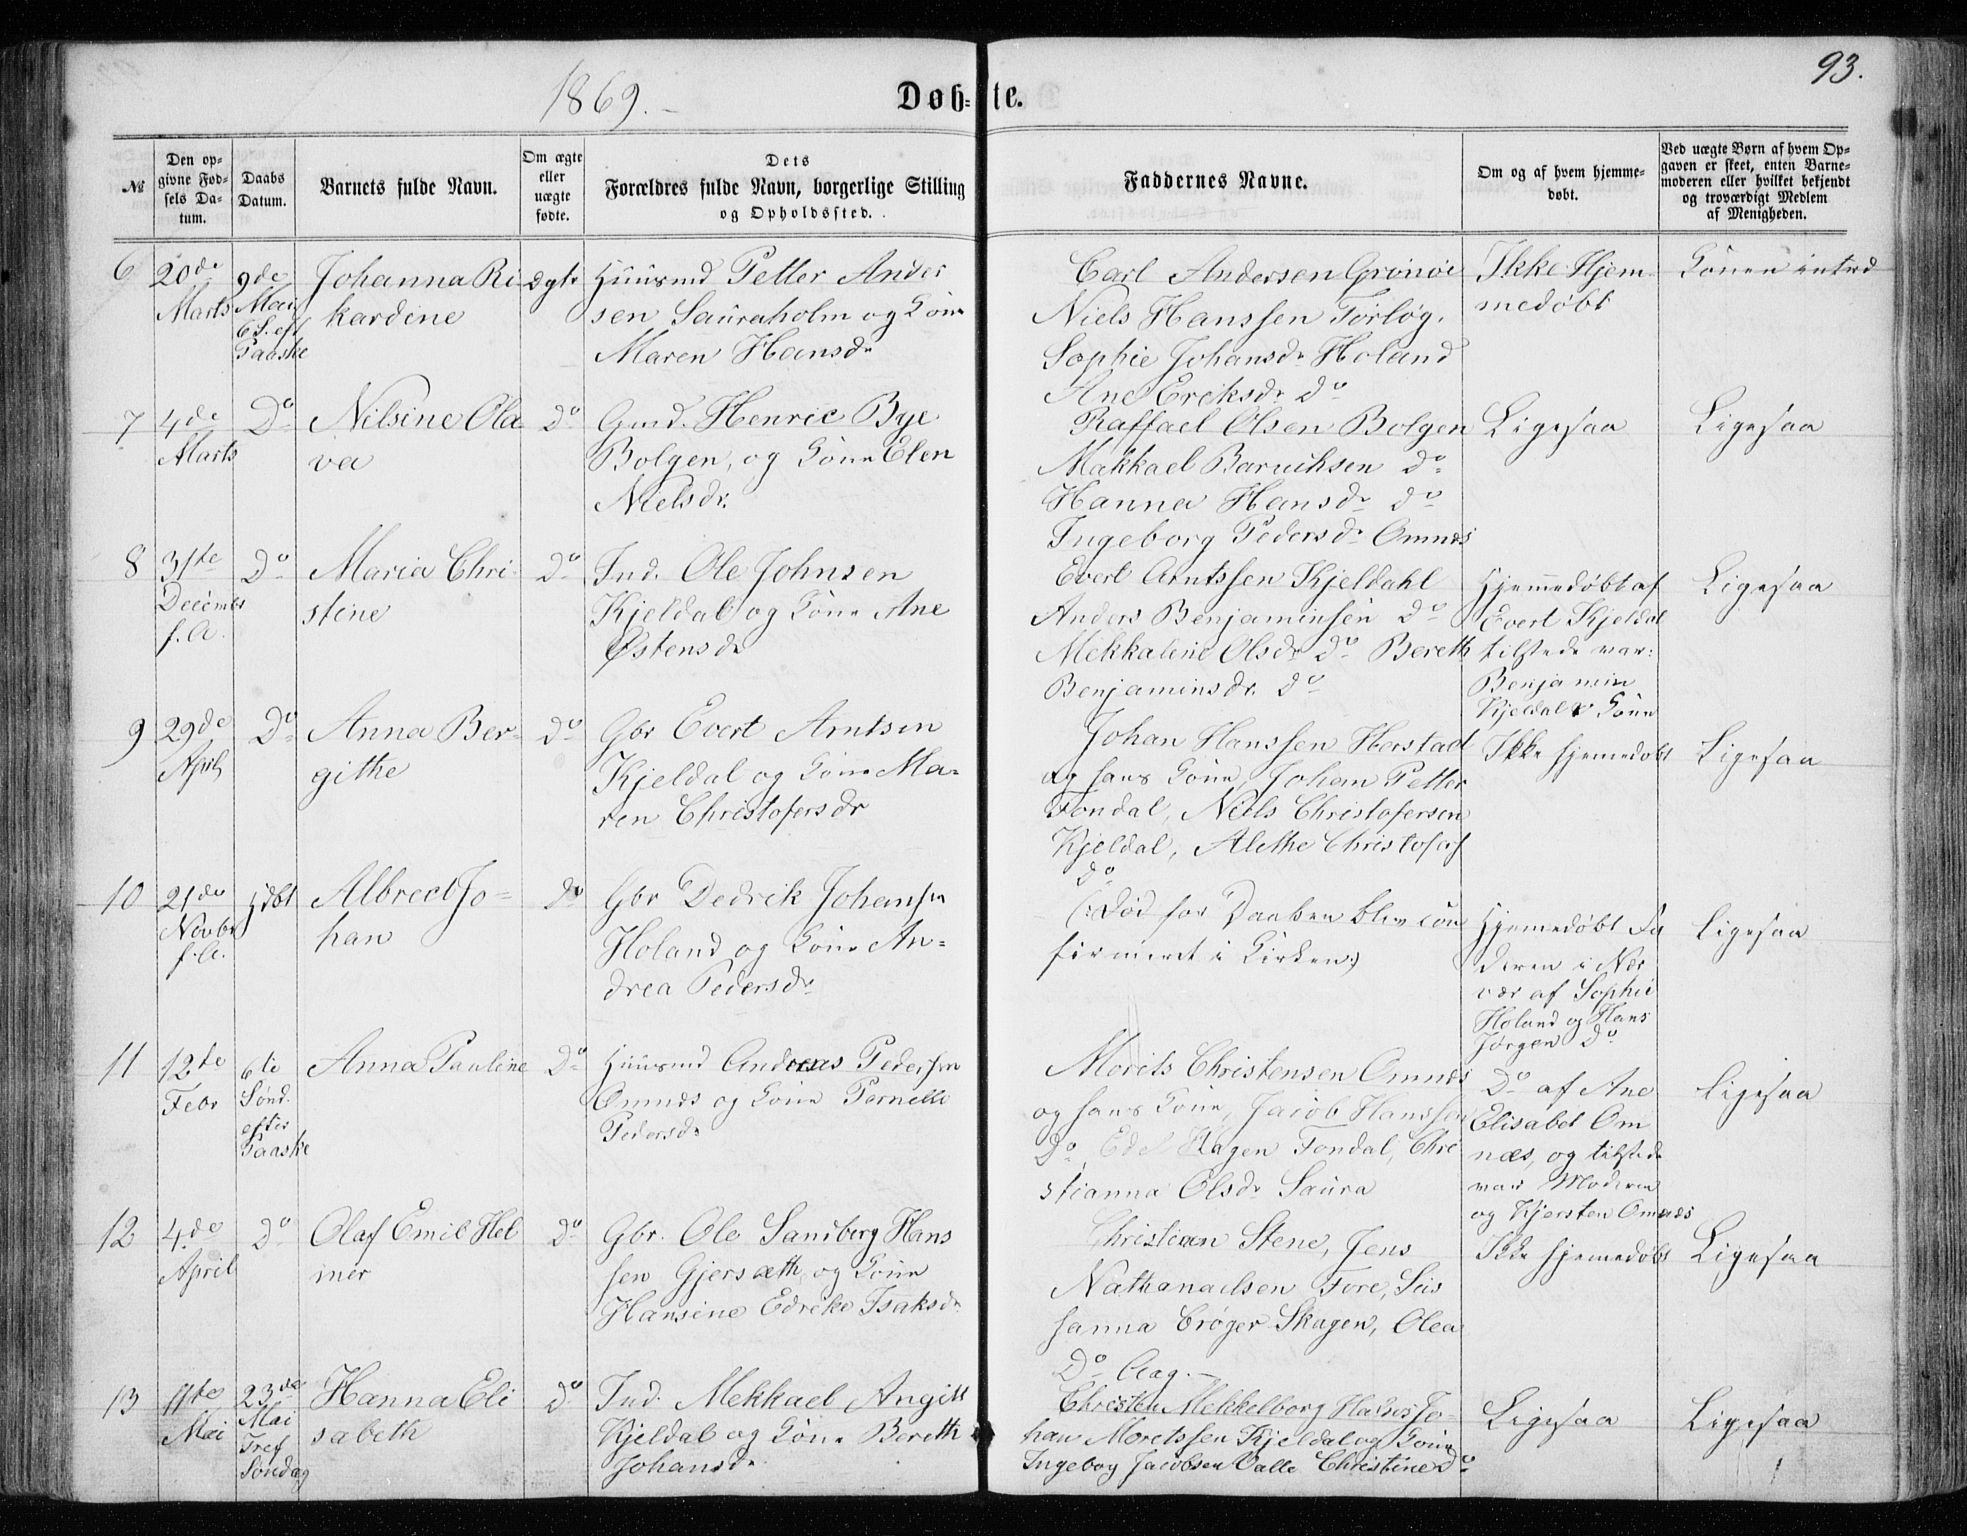 93.
1869.
Døb- te.
№
Den op-
givne Fød-
sels Da-
tum.
Daabs
Datum.
Barnets fulde Navn.
Om ægte
eller
uægte
fødte.
Dets
Forældres fulde Navn, borgerlige Stilling
og Opholdssted.
Faddernes Navne.
Om og af hvem hjemme-
døbt.
Ved uægte Børn af hvem Op-
gaven er skeet, enten Barne-
moderen eller hvilket bekjendt
og troværdigt Medlem
af Menigheden.
6
20de
Marts
9de
Mai
6 S. eft
Paaske
Johanna Ri
kardine
ægte
Huusmd Petter Ander
sen Sauraholm og Kone
Maren Hansdr
Carl Andersen Grønøe
Niels Hanssen Forløg.
Sophie Johansdr Holand
Ane Eriksdr do
Ikke Hjem
medøbt
Konen introd
7
4de
Marts
Do
Nilsine Ola
va
do
Gmd. Henric Bye
Bolgen, og Kone Elen
Nielsdr.
Raffael Olsen Bolgen
Makkael Baruchsen do
Hanna Hansdr do
Ingeborg Pedersdr Omnes
Ligesaa
Ligesaa
8
31te
Decembr
f. A.
Do
Maria Chri
stine
do
Ind. Ole Johnsen
Kjeldal og Kone Ane
Østensdr
Evert Arntssen Kjeldahl
Anders Benjaminsen do
Mekkaline Olsdr do Bereth
Benjaminsdr. do
Hjemmedøbt af
Evert Kjeldal
tilstede var:
Benjamin
Kjeldal & Kone
Ligesaa
9
29de
April
Do
Anna Ber-
githe
do
Gbr Evert Arntsen
Kjeldal og Kone Ma-
ren Christofersdr
Johan Hanssen Herstad
og hans Kone, Johan Petter
Fondal, Niels Christofersen
Kjeldal, Alethe Christofers
do
Ikke hjemedøbt
Ligesaa
10
21de
Novbr
f. A.
hjdbt
Albrect Jo-
han
do
Gbr Dedrik Johansen
Holand og Kone An-
drea Pedersdr
(: Død før Daaben blev con
firmeret i Kirken:)
Hjemedøbt Fa
deren i Nær
vær af Sophie
Holand og Hans
Jørgen do
Ligesaa
11
12te
Febr
6te
Sønd.
efter
Paaske
Anna Pauline
Do
Huusmd Andreas Pedersen
Omnes og Kone Pernelle
Pedersdr
Morits Christensen Omnes
og hans Kone, Jacob Hanssen
Do, Edel Hagen Fondal, Chri
stianna Olsdr Saura
Do af Ane
Elisabet Om
næs, og tilstede
var Moderen
og Kjersten Omnæs
Ligesaa
12
4de
April
Do
Olaf Emil Hel
mer
do
Gbr. Ole Sandberg Hans
sen Gjersæth og Kone
Hansine Edrike Isaksdr
Christian Stene, Jens
Nathanaelsen Fore, Sus
sanna Crøger Skagen, Olea
Do Aag.
Ikke hjemedøbt
Ligesaa
13
11te
Mai
23de
Mai
Tref
Søndag
Hanna Eli
sabeth
do
Ind. Mekkael Angell
Kjeldal og Kone Bereth
Johansdr
Christen Mekkelborg Jo-
han Moretssen Kjeldal og Kone
Ingebog Jacobsen Valle Christine do
Ligesaa
Ligesaa